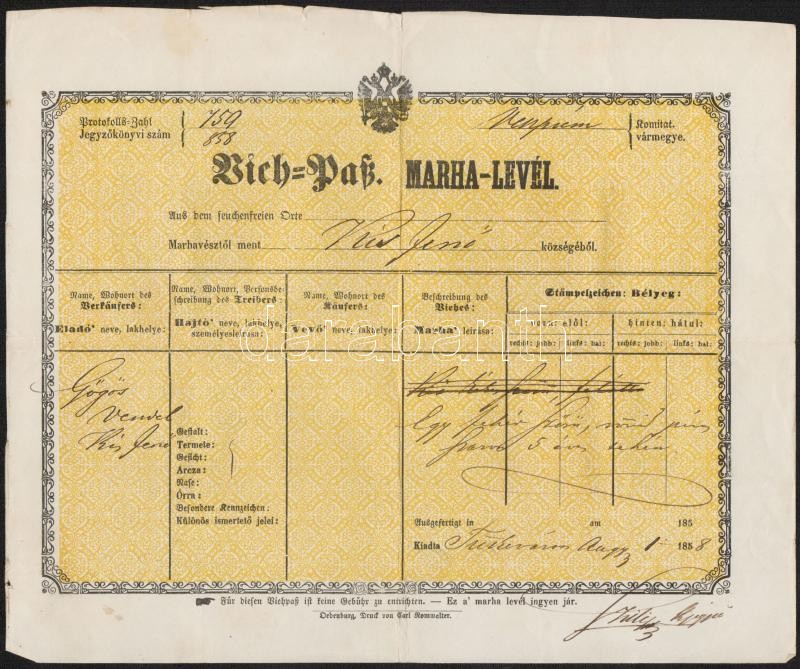 Protokolls-Zahl
Jegyzőkönyvi szám
759
858
Veszprém
Komitat.
vármegye.
Vieh=Paß. MARHA-LEVÉL.
Aus dem seuchenfreien Orte
Marhavésztől ment Kis Jenő községéből.
Name, Wohnort des
Verkäufers:
Eladó' neve, lakhelye:
Name, Wohnort, Personsbe-
schreibung des Treibers:
Hajtó' neve, lakhelye,
személyesleirása:
Name, Wohnort des
Käufers:
Vevő' neve, lakhelye:
Beschreibung des
Viehes:
Marha' leirása:
Stämpelzeichen: Bélyeg:
vorn: elől:
hinten: hátul:
rechts: jobb:
links: bal:
rechts: jobb:
links: bal:
darabanth
Gőgös
Vendel
Kis Jenő
Gestalt:
Termete:
Gesicht:
Arcza:
Nase:
Orra:
Besondere Kennzeichen:
Különös ismertető jelei:
Egy fehér szőrű,
5 éves tehén
Ausgefertigt in am 185
Kiadta Tüskeváros Aug 1 1858
Für diesen Viehpaß ist keine Gebühr zu entrichten. — Ez a' marha levél ingyen jár.
Oedenburg, Druck von Carl Romwalter.